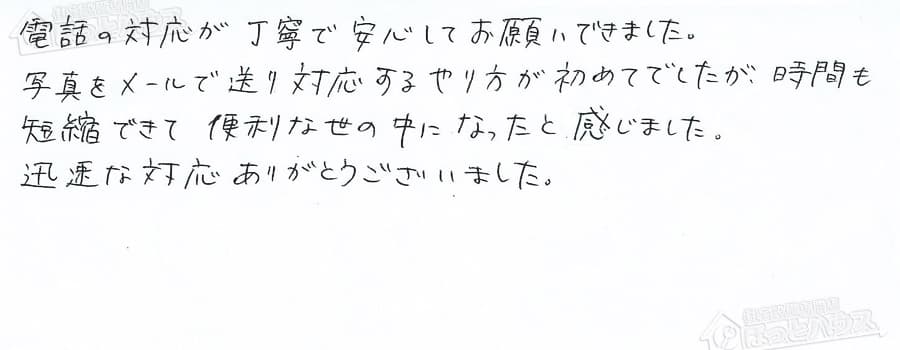 電話の対応が丁寧で安心してお願いできました。
写真をメールで送り対応するやり方が初めてでしたが、時間も
短縮できて便利な世の中になったと感じました。
迅速な対応ありがとうございました。
ほっとハウス